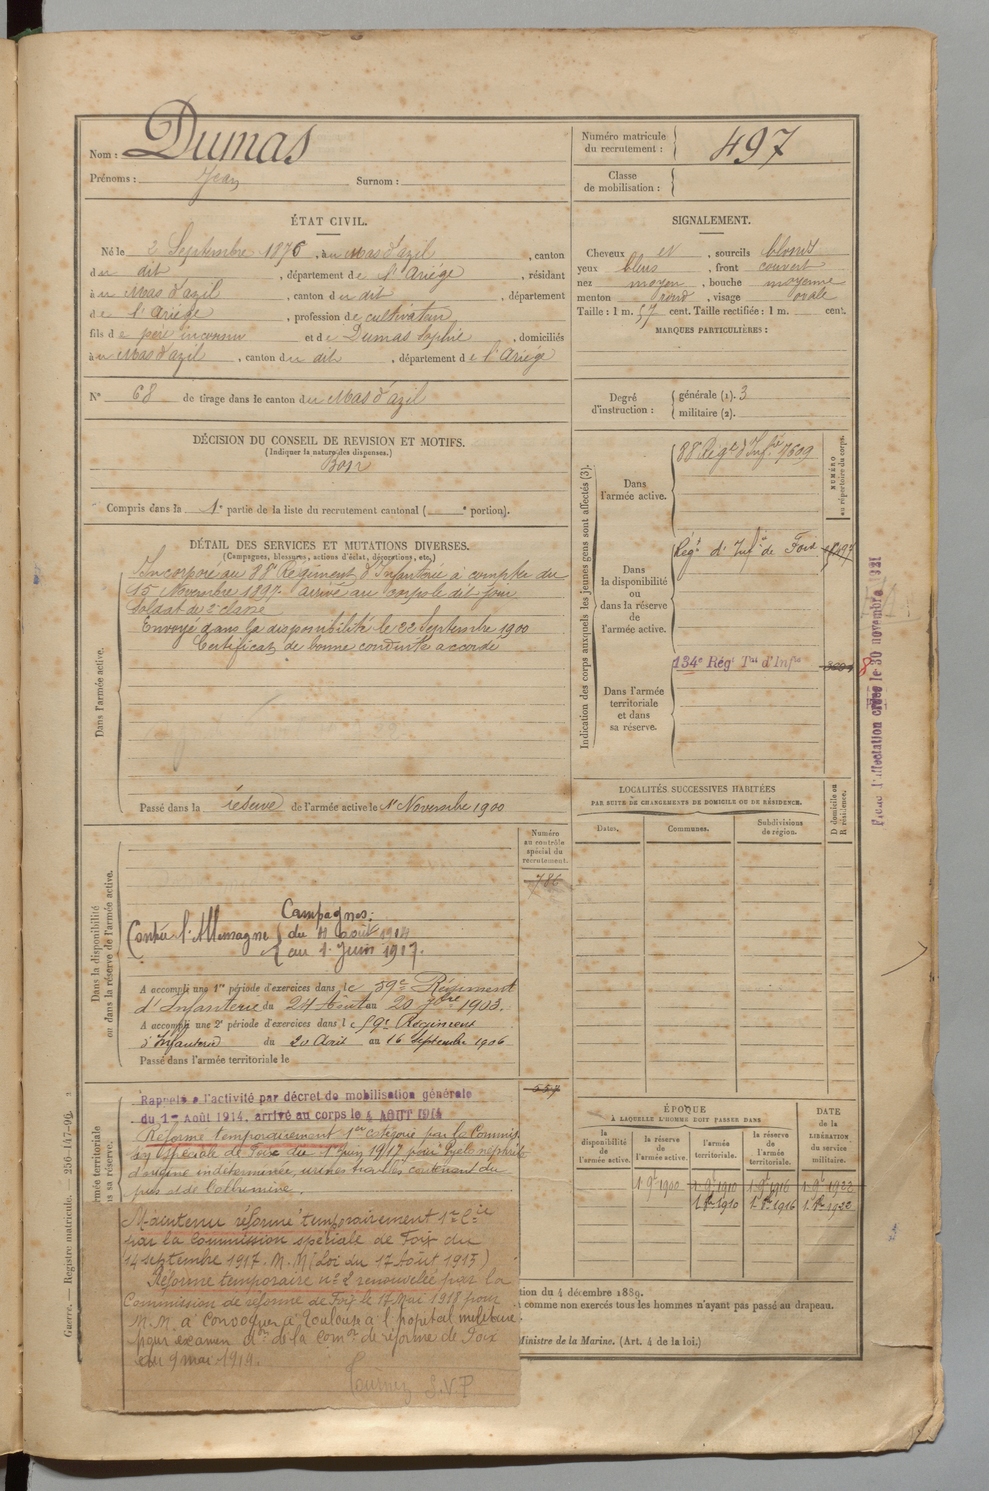 Nom : Dumas
Prénoms : Jean Surnom :
Numéro matricule du recrutement : 497
Classe de mobilisation :
ÉTAT CIVIL.
Né le 2 Septembre 1876, à au Mas d'azil, canton
du dit, département de l'Ariége, résidant
à au Mas d'azil, canton du dit, département
de l'Ariége, profession de cultivateur,
fils de père inconnu et de Dumas Sophie, domiciliés
à au Mas d'azil, canton du dit, département de l'Ariége
N° 68 de tirage dans le canton du Mas d'azil
SIGNALEMENT.
Cheveux et, sourcils blonds
yeux bleus, front couvert
nez moyen, bouche moyenne
menton rond, visage ovale
Taille : 1 m. 57 cent. Taille rectifiée : 1 m. cent.
MARQUES PARTICULIÈRES :
Degré d'instruction : générale (1). 3
militaire (2).
DÉCISION DU CONSEIL DE REVISION ET MOTIFS.
(Indiquer la nature des dispenses.)
Bon
Compris dans la 1e partie de la liste du recrutement cantonal ( e portion).
DÉTAIL DES SERVICES ET MUTATIONS DIVERSES.
(Campagnes, blessures, actions d'éclat, décorations, etc.)
Dans l'armée active.
Incorporé au 88e Régiment d'Infanterie à compter du
15 Novembre 1897. arrivé au corps le dit jour
Soldat de 2e classe
Envoyé dans la disponibilité le 22 Septembre 1900
Certificat de bonne conduite accordé
Passé dans la réserve de l'armée active le 1er Novembre 1900
Indication des corps auxquels les jeunes gens sont affectés (3).
NUMÉRO au répertoire du corps.
Dans l'armée active.
88e Régt d'Infrie 7609
Dans la disponibilité ou dans la réserve de l'armée active.
Régt d'Infie de Foix
Dans l'armée territoriale et dans sa réserve.
134e Régt Tal d'Infie
le 30 novembre 1921
LOCALITÉS SUCCESSIVES HABITÉES
PAR SUITE DE CHANGEMENTS DE DOMICILE OU DE RÉSIDENCE.
Dates. Communes. Subdivisions de région. D domicile ou R résidence.
Numéro au contrôle spécial du recrutement.
786
Dans la disponibilité ou dans la réserve de l'armée active.
Campagnes :
Contre l'Allemagne { du 4 août 1914
au 1 Juin 1917.
A accompli une 1re période d'exercices dans le 59e Régiment
d'Infanterie du 24 Août au 20 7bre 1903.
A accompli une 2e période d'exercices dans le 59e Régiment
d'Infanterie du 20 Août au 16 Septembre 1906
Passé dans l'armée territoriale le
Rappelé à l'activité par décret de mobilisation générale
du 1er Août 1914, arrivé au corps le 4 AOUT 1914
Réformé temporairement 1ère catégorie par la Commis
on spéciale de Foix du 1 Juin 1917 pour Pyélonéphrite
d'origine indéterminée, urines troubles contenant du
pus et de l'albumine.
Maintenu réformé temporairement 1re Cie
par la commission spéciale de Foix du
14 septembre 1917. M. M (Loi du 17 Août 1915)
Réforme temporaire n° 2 renouvelée par la
Commission de réforme de Foix le 17 Mai 1918 pour
M. M. à convoquer à Toulouse à l'hôpital militaire
pour examen don de la Comon de réforme de Foix
du 9 mai 1919.
Tournez S.V.P
ÉPOQUE
À LAQUELLE L'HOMME DOIT PASSER DANS
DATE de la LIBÉRATION DU service militaire.
la disponibilité de l'armée active. la réserve de l'armée active. l'armée territoriale. la réserve de l'armée territoriale.
1 9e 1900 1 9e 1910 1 9e 1916 1 9e 1922
1 8e 1910 1 8e 1916 1 8e 1922
tion du 4 décembre 1889.
comme non exercés tous les hommes n'ayant pas passé au drapeau.
Ministre de la Marine. (Art. 4 de la loi.)
Guerre. — Registre matricule. — 256-147-96.